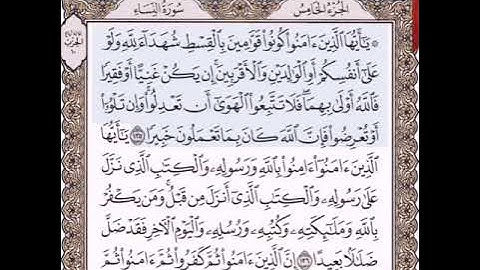 الجزء الخامس سورة النساء
۞ يَٰٓأَيُّهَا ٱلَّذِينَ ءَامَنُوا۟ كُونُوا۟ قَوَّٰمِينَ بِٱلْقِسْطِ شُهَدَآءَ لِلَّهِ وَلَوْ
عَلَىٰٓ أَنفُسِكُمْ أَوِ ٱلْوَٰلِدَيْنِ وَٱلْأَقْرَبِينَ ۚ إِن يَكُنْ غَنِيًّا أَوْ فَقِيرًا
فَٱللَّهُ أَوْلَىٰ بِهِمَا ۖ فَلَا تَتَّبِعُوا۟ ٱلْهَوَىٰٓ أَن تَعْدِلُوا۟ ۚ وَإِن تَلْوُۥٓا۟
أَوْ تُعْرِضُوا۟ فَإِنَّ ٱللَّهَ كَانَ بِمَا تَعْمَلُونَ خَبِيرًا ١٣٥ يَٰٓأَيُّهَا
ٱلَّذِينَ ءَامَنُوٓا۟ ءَامِنُوا۟ بِٱللَّهِ وَرَسُولِهِۦ وَٱلْكِتَٰبِ ٱلَّذِى نَزَّلَ
عَلَىٰ رَسُولِهِۦ وَٱلْكِتَٰبِ ٱلَّذِىٓ أَنزَلَ مِن قَبْلُ ۚ وَمَن يَكْفُرْ
بِٱللَّهِ وَمَلَٰٓئِكَتِهِۦ وَكُتُبِهِۦ وَرُسُلِهِۦ وَٱلْيَوْمِ ٱلْءَاخِرِ فَقَدْ ضَلَّ
ضَلَٰلًۢا بَعِيدًا ١٣٦ إِنَّ ٱلَّذِينَ ءَامَنُوا۟ ثُمَّ كَفَرُوا۟ ثُمَّ ءَامَنُوا۟ ثُمَّ